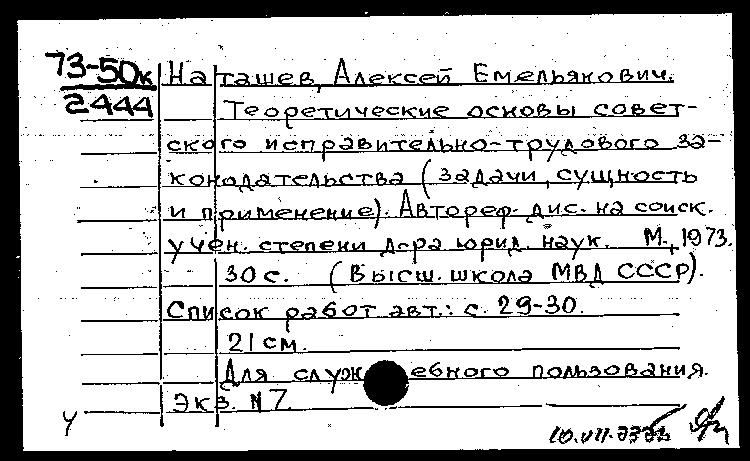 73-50к
2444
Наташев, Алексей Емельянович.
Теоретические основы совет-
ского исправительно-трудового за-
конодательства (задачи, сущность
и применение). Автореф. дис. на соиск.
учен. степени д-ра юрид. наук. М., 1973.
30 с. (Высш. школа МВД СССР).
Список работ авт.: с. 29-30.
21 см.
Для служебного пользования.
Экз. N 7.
У